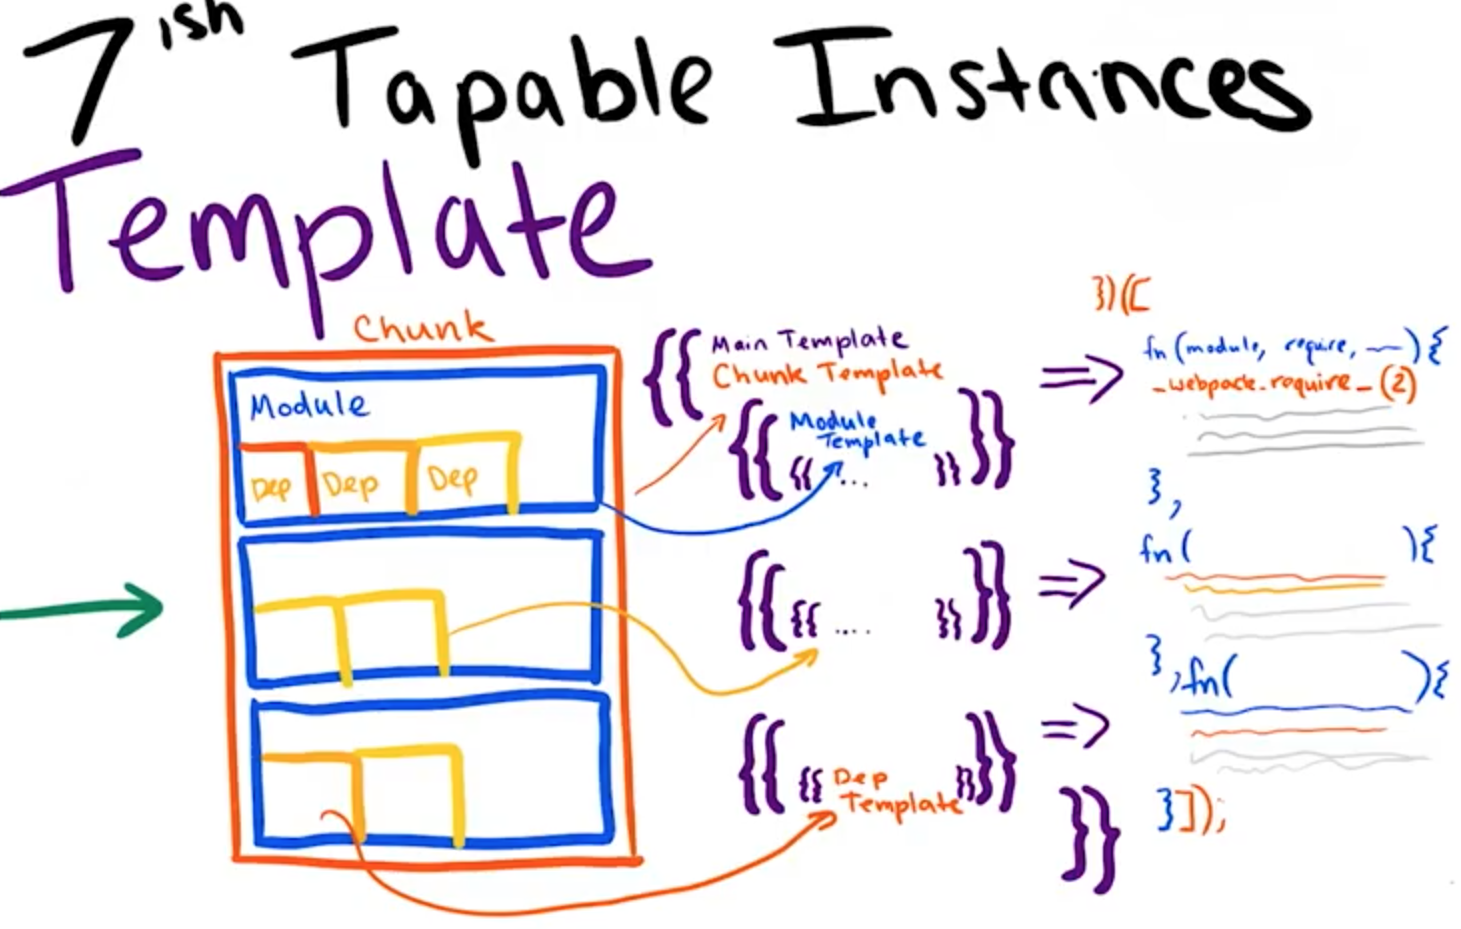 7ish Tapable Instances
Template
Chunk
Module
Dep Dep Dep
{{ Main Template
Chunk Template
{{ Module Template }}
{{ ... }}
=>
})([
fn(module, require, __){
_webpack_require_(2)
},
{{ {{ .... }} }}
=>
fn( ){
},fn( ){
{{ {{ Dep Template }} }}
=>
}}
}]);